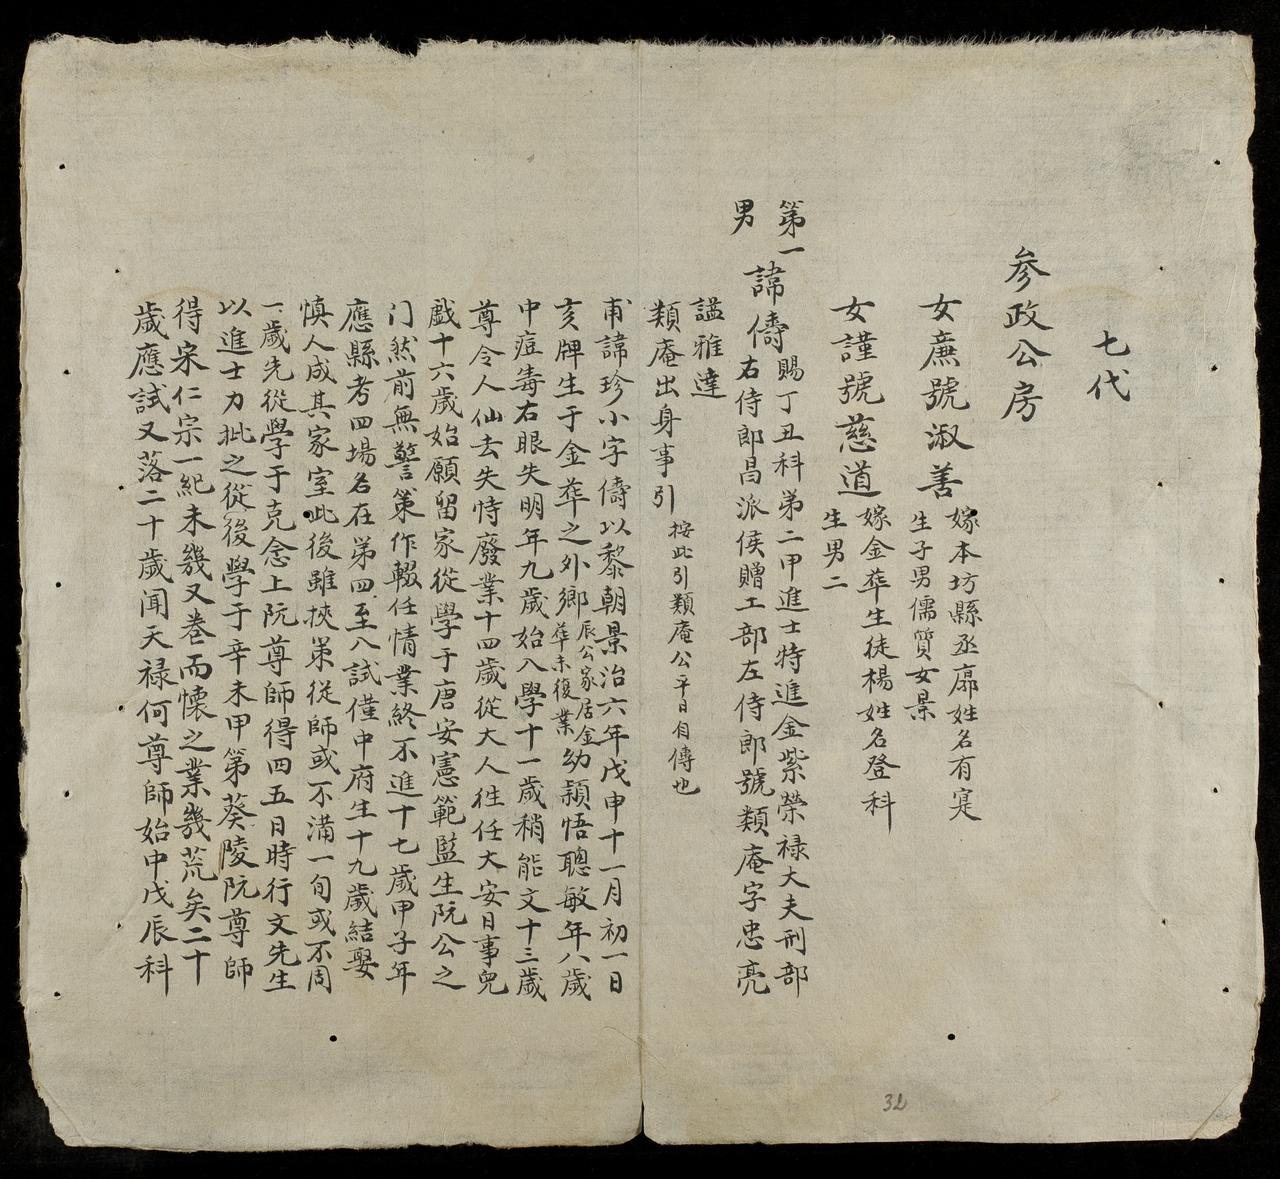 七代
參政公房
女㢘號淑善
嫁本坊縣丞廓姓名有寔
生子男儒質女景
女謹號慈道
嫁金華生徒楊姓名登科
生男二
第一男
諱儔
賜丁丑科第二甲進士特進金紫榮祿大夫刑部
右侍郎昌派侯贈工部左侍郎號類庵字忠亮
謚雅達
類庵出身事引 按此引類庵公平日自傳也
甫諱珍小字儔以黎朝景治六年戊申十一月初一日
亥牌生于金華之外鄉
辰公家居金
華未復業
幼穎悟聰敏年八歲
中痘毒右眼失明年九歲始入學十一歲稍能文十三歲
尊令人仙去失恃廢業十四歲從大人徃任大安日事兒
戲十六歲始願留家從學于唐安憲範監生阮公之
门然前無警策作輟任情業終不進十七歲甲子年
應縣考四場名在第四至八試僅中府生十九歲結娶
慎人成其家室此後雖挾策從師或不滿一旬或不周
一歲先從學于克念上阮尊師得四五日時行文先生
以進士力批之從後學于辛未甲第葵陵阮尊師
得宋仁宗一紀未幾又卷而懷之業幾荒矣二十
歲應試又落二十歲闻天祿何尊師始中戊辰科
32